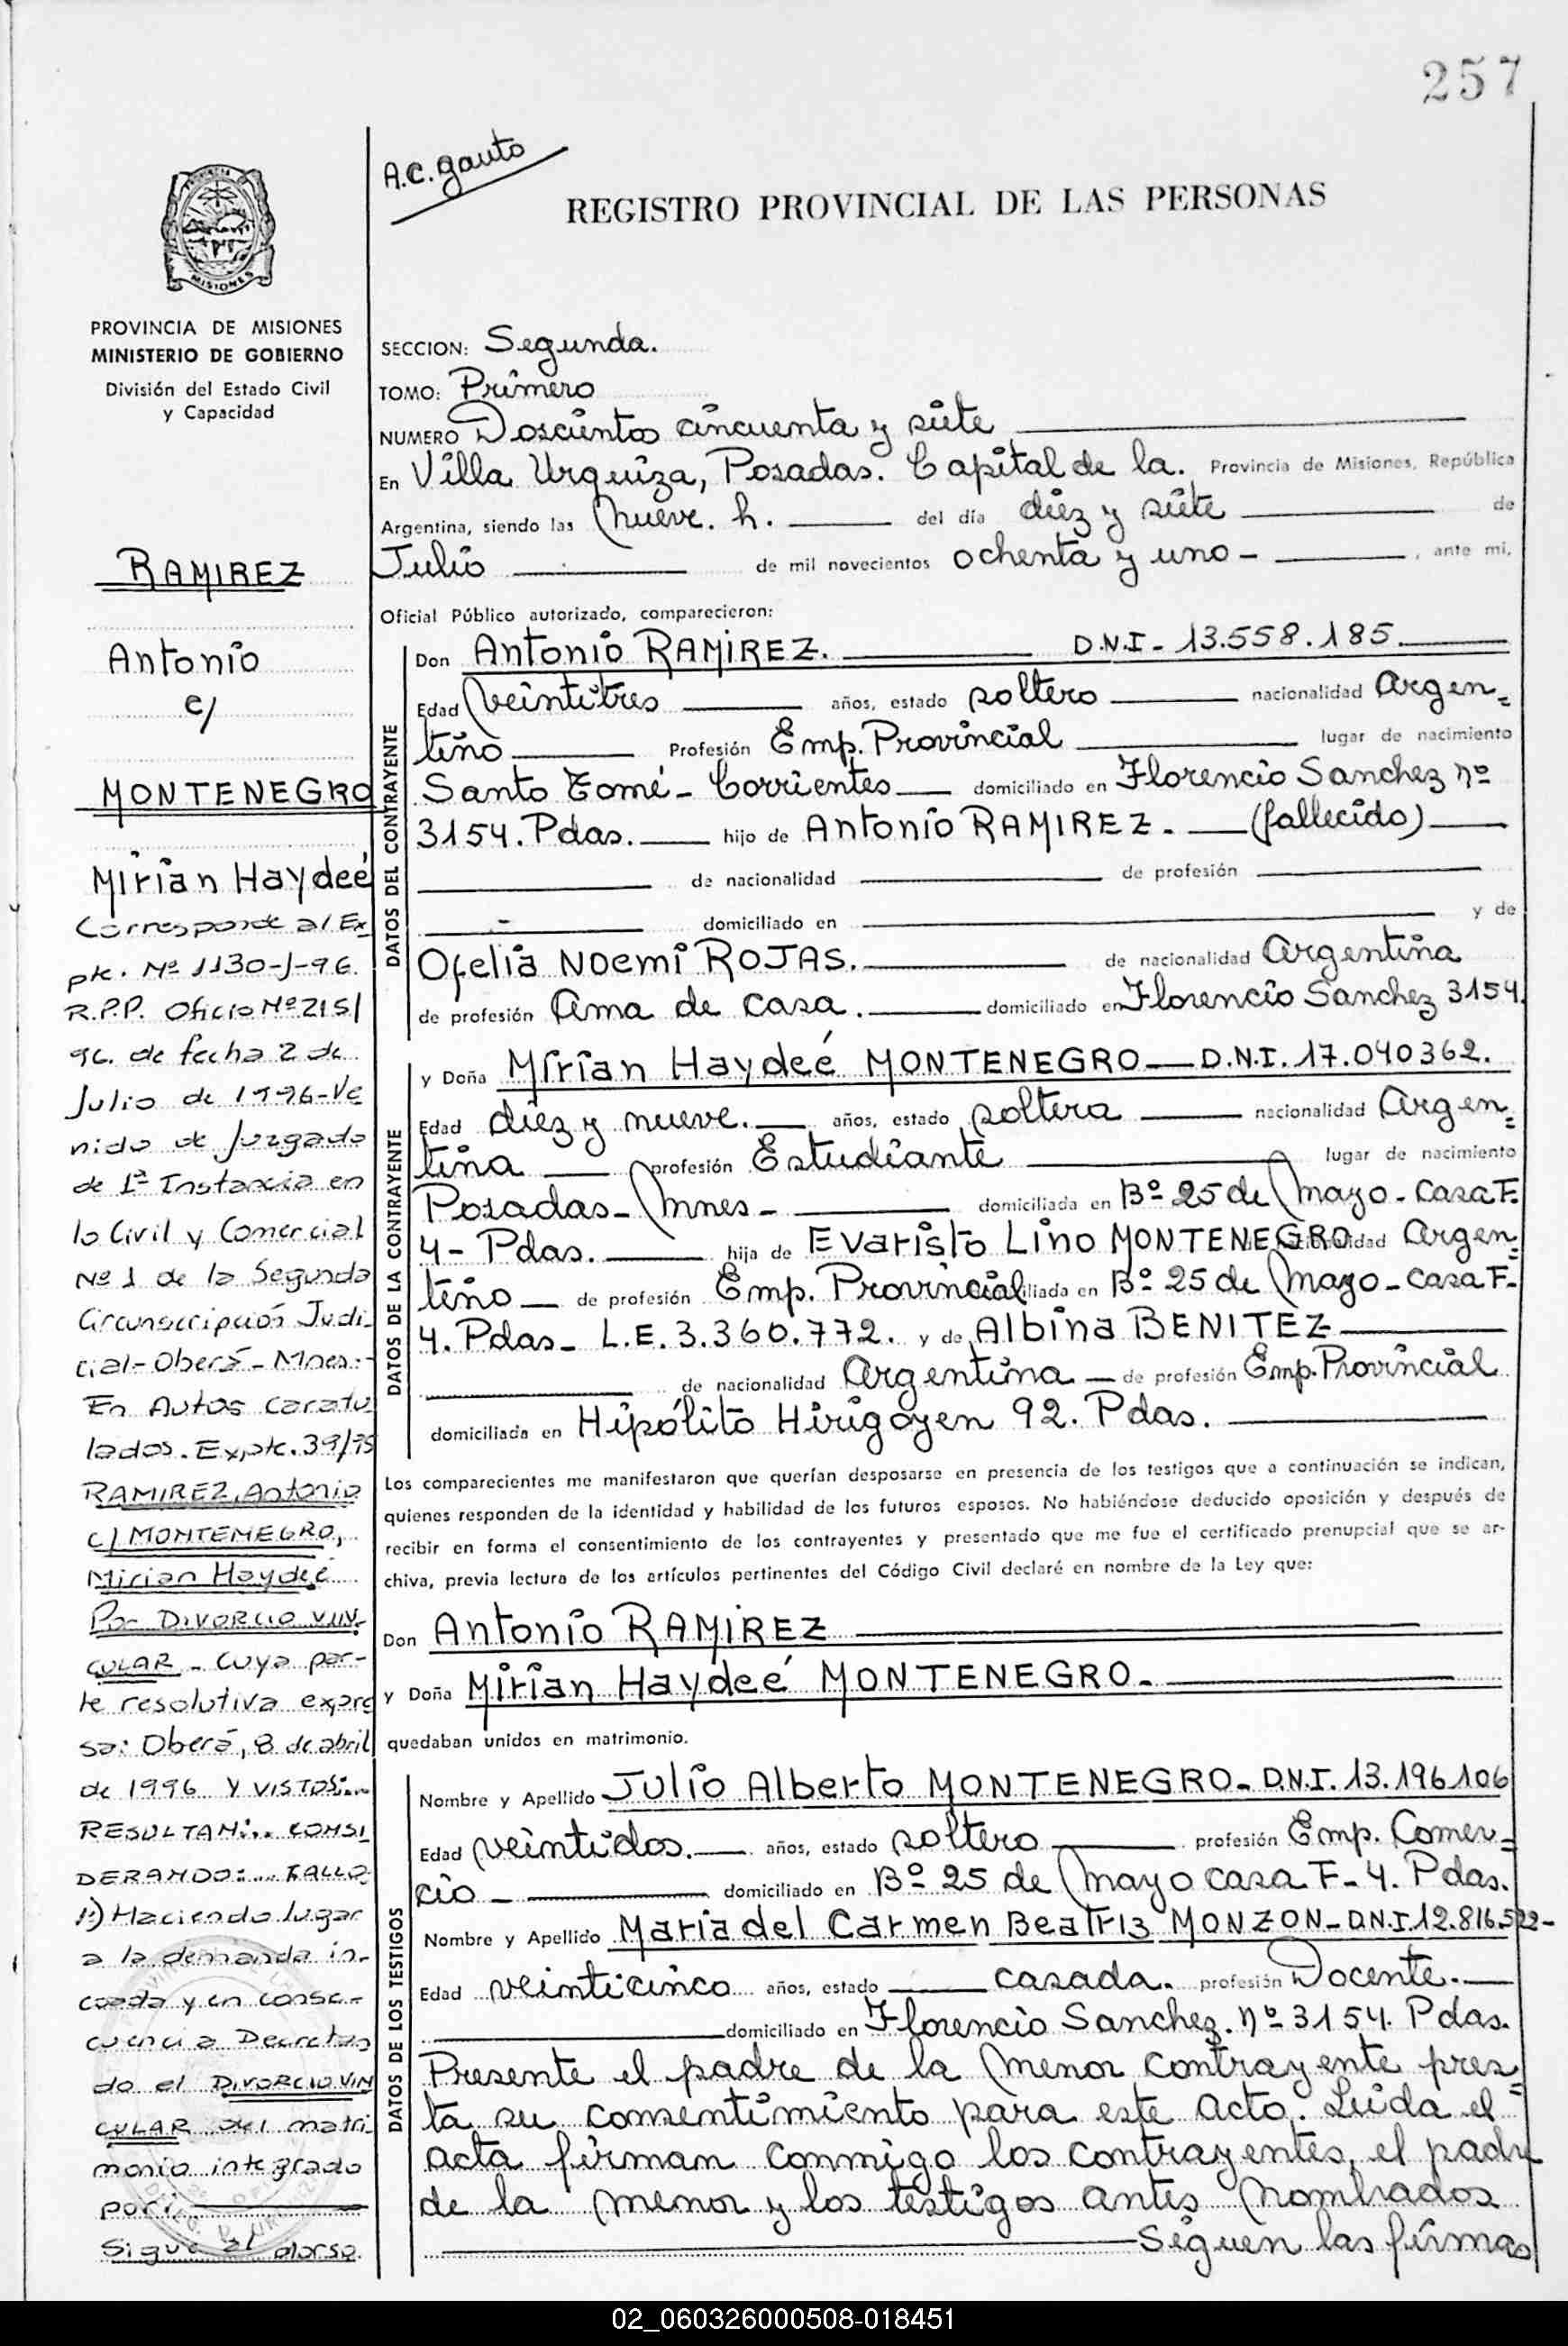 257
A.C. Gauto
REGISTRO PROVINCIAL DE LAS PERSONAS
MISIONES
PROVINCIA DE MISIONES
MINISTERIO DE GOBIERNO
División del Estado Civil
y Capacidad
RAMIREZ
Antonio
c/
MONTENEGRO
Mirian Haydeé
Corresponde al Ex-
pte. Nº 1130-J-96.
R.P.P. Oficio Nº 215/
96. de fecha 2 de
Julio de 1996-Ve
nido de Juzgado
de 1ª Instancia en
lo Civil y Comercial
Nº 1 de la Segunda
Circunscripción Judi-
cial-Oberá-Mnes.-
En Autos caratu
lados. Expte. 39/95
RAMIREZ, Antonio
c/ MONTENEGRO,
Mirian Haydeé
Por DIVORCIO VIN-
CULAR - Cuya par-
te resolutiva expre
sa: Oberá, 8 de abril
de 1996 Y VISTOS:...
RESULTAN:.. CONSI
DERANDO:... FALLO:
1º) Haciendo lugar
a la demanda in-
coada y en conse-
cuencia Decretan
do el DIVORCIO VIN
CULAR del matri-
monio integrado
por:
Sigue al dorso.
SECCION: Segunda.
TOMO: Primero
NUMERO Doscientos cincuenta y siete
En Villa Urquiza, Posadas. Capital de la. Provincia de Misiones, República
Argentina, siendo las nueve. h. del día diez y siete de
Julio de mil novecientos ochenta y uno - , ante mi,
Oficial Público autorizado, comparecieron:
DATOS DEL CONTRAYENTE
Don Antonio RAMIREZ. D.N.I - 13.558.185.
Edad veintitres años, estado soltero nacionalidad Argen=
tino Profesión Emp. Provincial lugar de nacimiento
Santo Tomé - Corrientes domiciliado en Florencio Sanchez nº
3154. Pdas. hijo de Antonio RAMIREZ. (fallecido)
de nacionalidad de profesión
domiciliado en y de
Ofelia Noemi ROJAS. de nacionalidad Argentina
de profesión Ama de casa. domiciliado en Florencio Sanchez 3154.
DATOS DE LA CONTRAYENTE
y Doña Mirian Haydeé MONTENEGRO D.N.I. 17.040362.
Edad diez y nueve. años, estado soltera nacionalidad Argen=
tina profesión Estudiante lugar de nacimiento
Posadas - Mnes - domiciliada en Bº 25 de Mayo - Casa F.
4 - Pdas. hija de Evaristo Lino MONTENEGRO Argen=
tino de profesión Emp. Provincial Bº 25 de Mayo - Casa F-
4. Pdas - L.E. 3.360.772. y de Albina BENITEZ
de nacionalidad Argentina - de profesión Emp. Provincial
domiciliada en Hipólito Hirigoyen 92. Pdas.
Los comparecientes me manifestaron que querían desposarse en presencia de los testigos que a continuación se indican,
quienes responden de la identidad y habilidad de los futuros esposos. No habiéndose deducido oposición y después de
recibir en forma el consentimiento de los contrayentes y presentado que me fue el certificado prenupcial que se ar-
chiva, previa lectura de los artículos pertinentes del Código Civil declaré en nombre de la Ley que:
Don Antonio RAMIREZ
y Doña Mirian Haydeé MONTENEGRO.
quedaban unidos en matrimonio.
DATOS DE LOS TESTIGOS
Nombre y Apellido Julio Alberto MONTENEGRO - D.N.I. 13.196.106
Edad veintidos. años, estado soltero profesión Emp. Comer=
cio - domiciliado en Bº 25 de Mayo casa F- 4. Pdas.
Nombre y Apellido Maria del Carmen Beatriz MONZON - D.N.I. 12.816.522-
Edad veinticinco años, estado casada. profesión Docente.
domiciliado en Florencio Sanchez. nº 3154. Pdas.
Presente el padre de la menor contrayente pres=
ta su consentimiento para este acto. Leida el
acta firman conmigo los contrayentes, el padre
de la menor y los testigos antes nombrados
Siguen las firmas
02_060326000508-018451